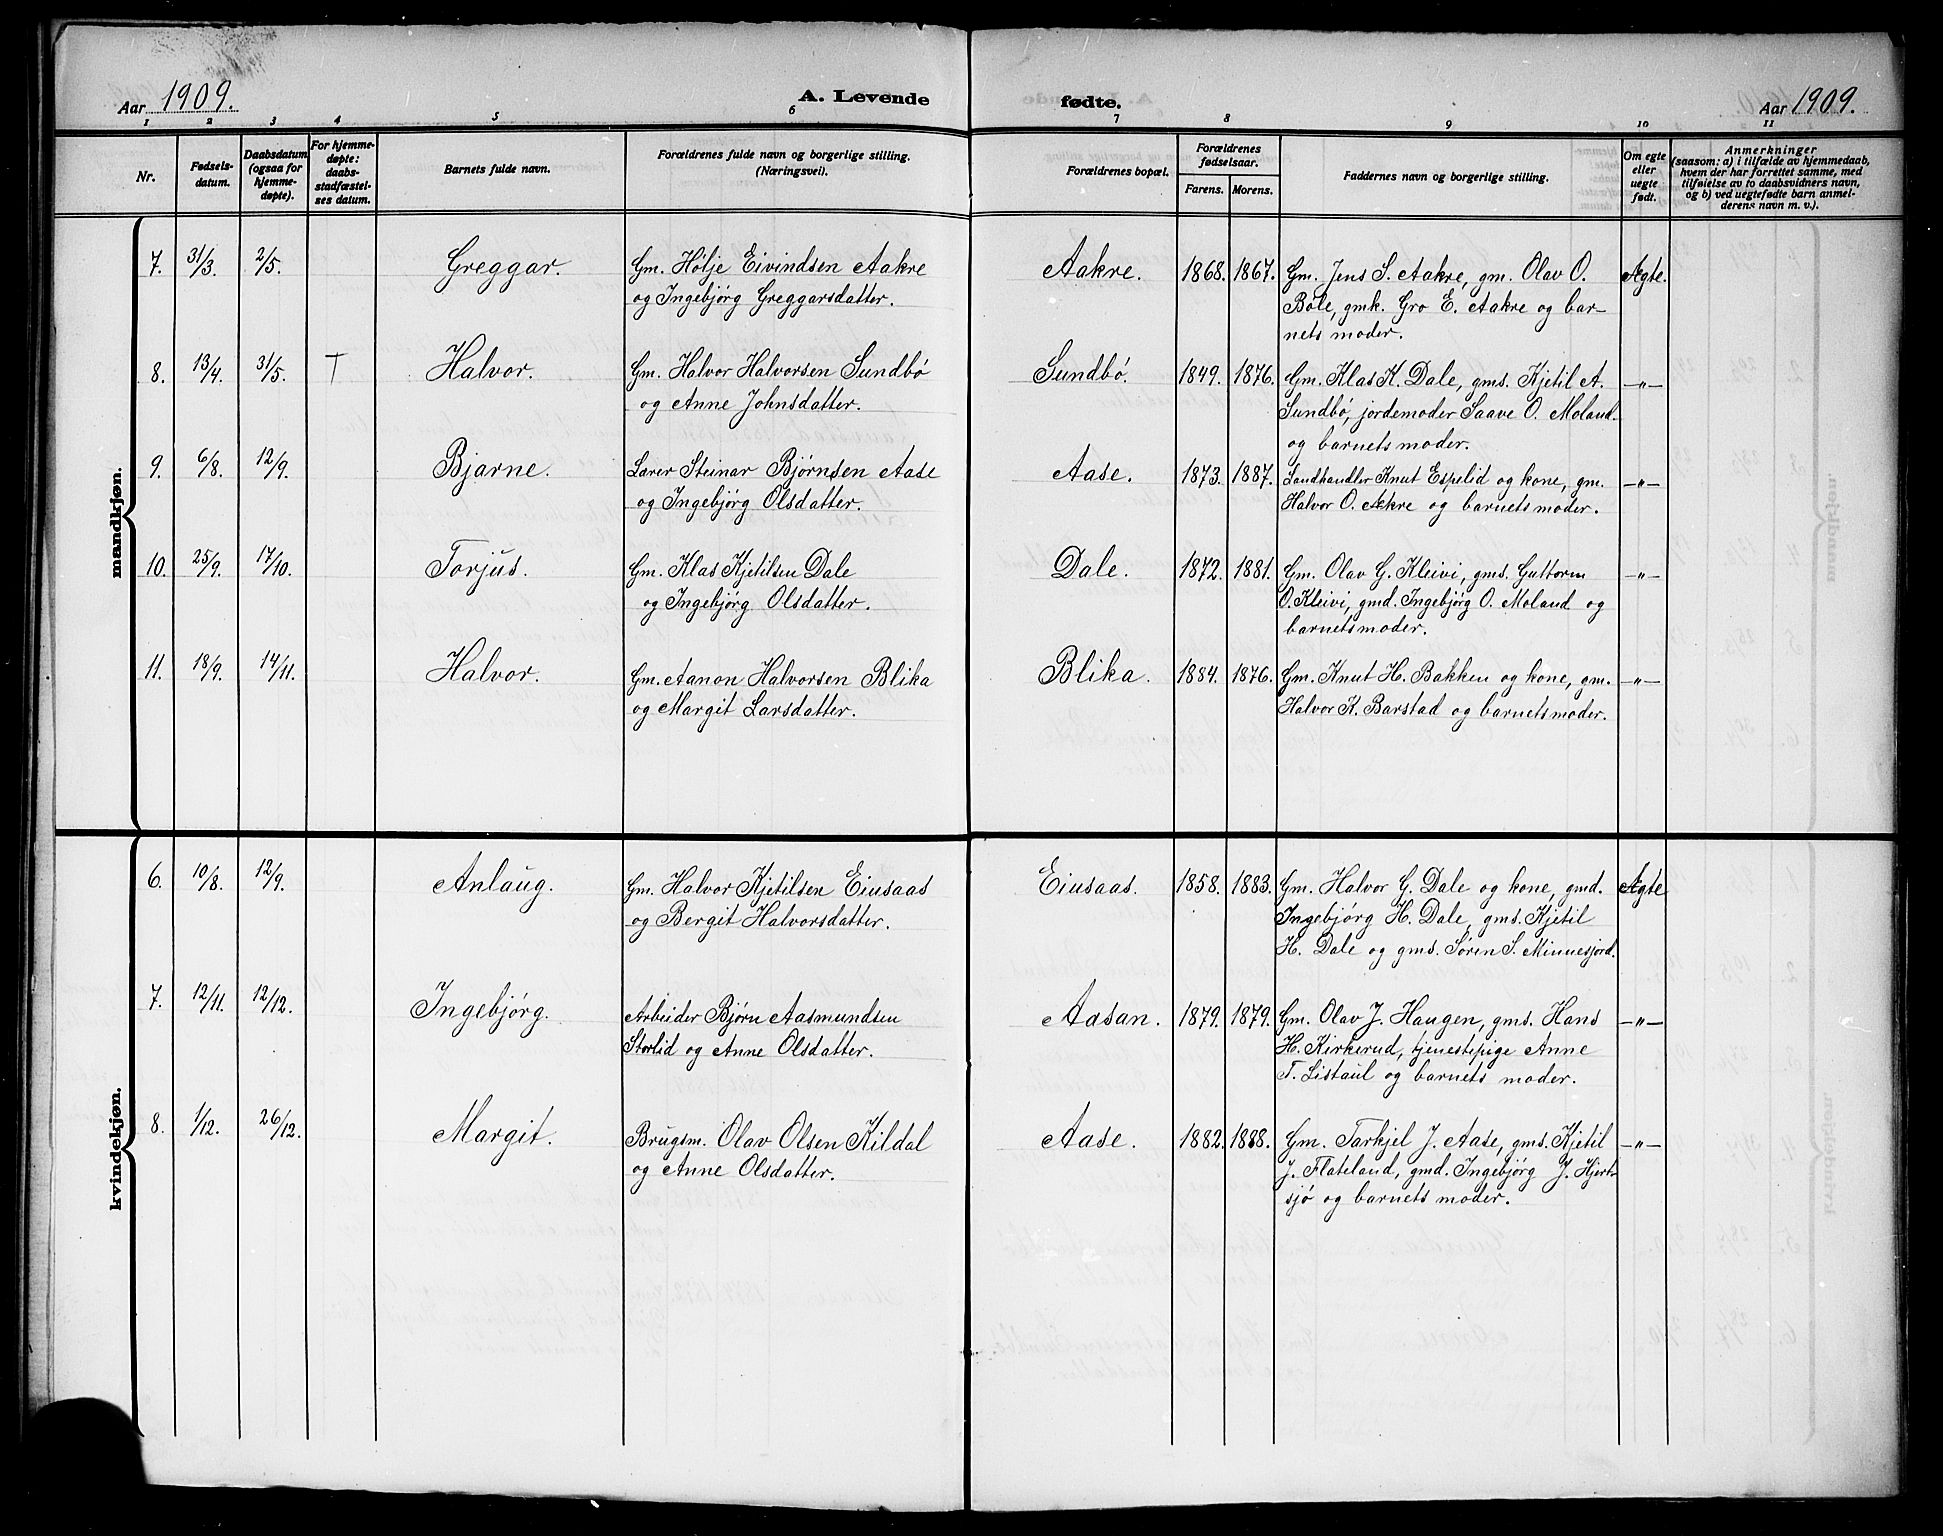 Aar 1909. A. Levende fødte. Aar 1909.
1 2 3 4 5 6 7 8 9 10 11
Nr.
Fødsels-
datum.
Daabsdatum
(ogsaa for
hjemme-
døpte).
For hjemme-
døpte:
daabs-
stadfæstel-
ses datum.
Barnets fulde navn.
Forældrenes fulde navn og borgerlige stilling.
(Næringsvei).
Forældrenes bopæl.
Forældrenes
fødselsaar.
Farens. Morens.
Faddernes navn og borgerlige stilling.
Om egte
eller
uegte
født.
Anmerkninger
(saasom: a) i tilfælde av hjemmedaab,
hvem der har forrettet samme, med
tilføielse av to daabsvidners navn,
og b) ved uegtefødte barn anmel-
derens navn m. v.).
mandkjøn.
7. 31/3. 2/5. Greggar. Gm. Hølje Eivindsen Aakre
og Ingebjørg Greggarsdatter.
Aakre. 1868. 1867. Gm. Jens S. Aakre, gm. Olav O.
Bole, gmk. Gro E. Aakre og bar-
nets moder.
Ægte.
8. 13/4. 31/5. † Halvor. Gm. Halvor Halvorsen Sundbø
og Anne Johnsdatter.
Sundbø. 1849. 1876. Gm. Klas K. Dale, gms. Kjetil A.
Sundbø, jordemoder Saave O. Moland
og barnets moder.
—"—
9. 6/8. 12/9. Bjarne. Lærer Steinar Bjørnsen Aase
og Ingebjørg Olsdatter.
Aase. 1873. 1887. Landhandler Knut Espelid og kone, gm.
Halvor O. Aakre og barnets moder.
—"—
10. 25/9. 17/10. Torjus. Gm. Klas Kjetilsen Dale
og Ingebjørg Olsdatter.
Dale. 1872. 1881. Gm. Olav G. Kleivi, gms. Guttorm
O. Kleivi, gmd. Ingebjørg O. Moland og
barnets moder.
—"—
11. 18/9. 14/11. Halvor. Gm. Aanon Halvorsen Blika
og Margit Larsdatter.
Blika. 1884. 1876. Gm. Knut H. Bakken og kone, gm.
Halvor K. Barstad og barnets moder.
—"—
kvindekjøn.
6. 10/8. 12/9. Anlaug. Gm. Halvor Kjetilsen Eiusaas
og Bergit Halvorsdatter.
Eiusaas. 1858. 1883. Gm. Halvor G. Dale og kone, gmd.
Ingebjørg H. Dale, gms. Kjetil
H. Dale og gms. Søren S. Minnesjord.
Ægte
7. 12/11. 12/12. Ingebjørg. Arbeider Bjørn Aasmundsen
Storlid og Anne Olsdatter.
Aasan. 1879. 1879. Gm. Olav J. Haugen, gms. Hans
H. Kirkerud, tjenestepige Anne
T. Listaul og barnets moder.
—"—
8. 1/12. 26/12. Margit. Brugsm. Olav Olsen Kildal
og Anne Olsdatter.
Aase. 1882. 1888. Gm. Tarkjel J. Aase, gms. Kjetil
J. Flateland, gmd. Ingebjørg J. Hjert-
sjø og barnets moder.
—"—